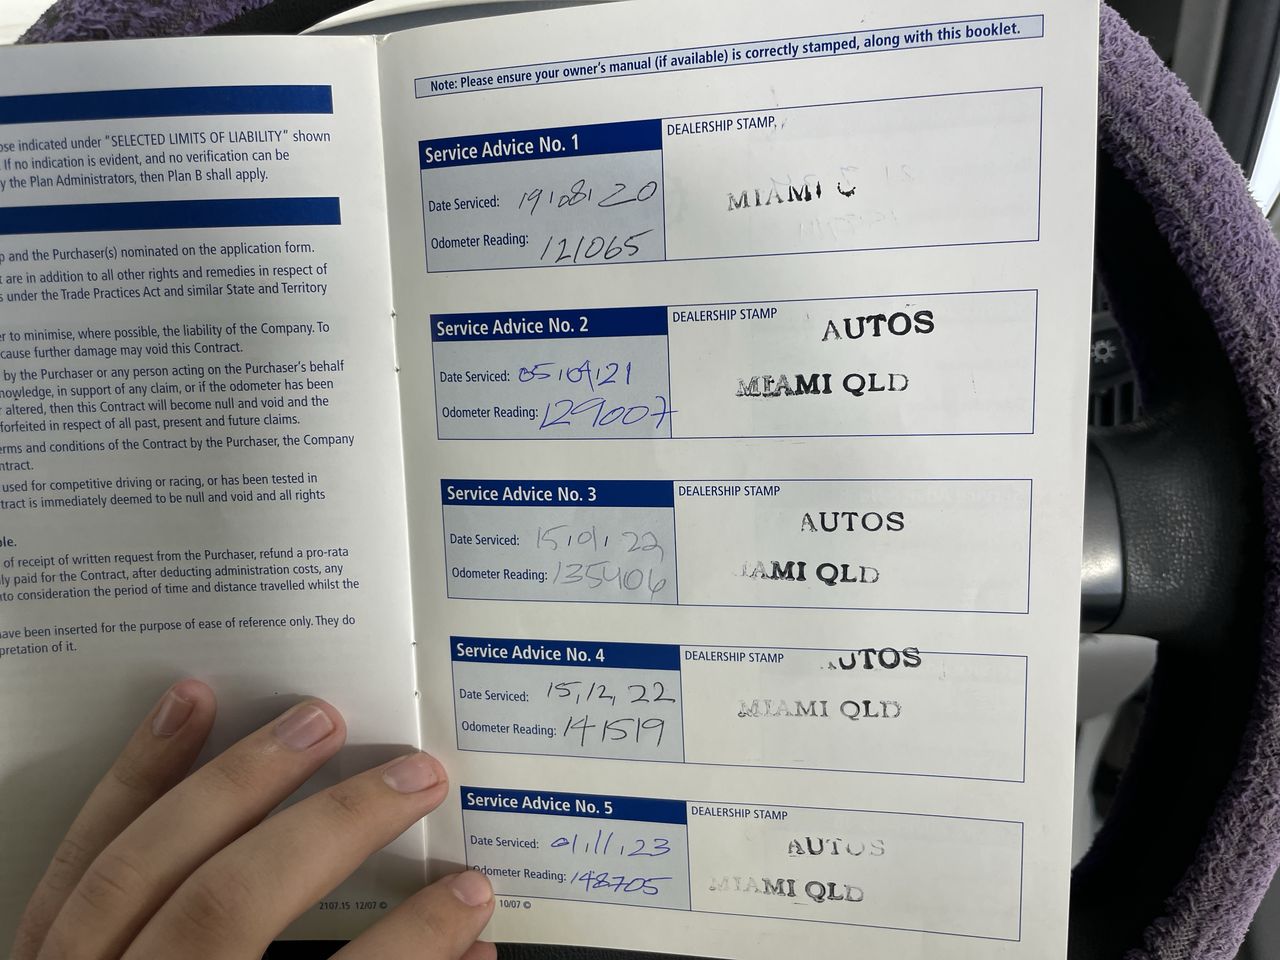 ose indicated under "SELECTED LIMITS OF LIABILITY" shown
. If no indication is evident, and no verification can be
y the Plan Administrators, then Plan B shall apply.
p and the Purchaser(s) nominated on the application form.
t are in addition to all other rights and remedies in respect of
s under the Trade Practices Act and similar State and Territory
er to minimise, where possible, the liability of the Company. To
cause further damage may void this Contract.
by the Purchaser or any person acting on the Purchaser's behalf
nowledge, in support of any claim, or if the odometer has been
altered, then this Contract will become null and void and the
forfeited in respect of all past, present and future claims.
erms and conditions of the Contract by the Purchaser, the Company
ntract.
used for competitive driving or racing, or has been tested in
tract is immediately deemed to be null and void and all rights
ble.
of receipt of written request from the Purchaser, refund a pro-rata
ly paid for the Contract, after deducting administration costs, any
nto consideration the period of time and distance travelled whilst the
have been inserted for the purpose of ease of reference only. They do
pretation of it.
2107.15 12/07 ©
Note: Please ensure your owner's manual (if available) is correctly stamped, along with this booklet.
Service Advice No. 1
DEALERSHIP STAMP
Date Serviced: 19,08,20
MIAMI
Odometer Reading: 121065
Service Advice No. 2
DEALERSHIP STAMP
AUTOS
Date Serviced: 05,04,21
MIAMI QLD
Odometer Reading: 129007
Service Advice No. 3
DEALERSHIP STAMP
AUTOS
Date Serviced: 15,01,22
IAMI QLD
Odometer Reading: 135406
Service Advice No. 4
DEALERSHIP STAMP
UTOS
Date Serviced: 15,12,22
MIAMI QLD
Odometer Reading: 141519
Service Advice No. 5
DEALERSHIP STAMP
AUTOS
Date Serviced: 01,11,23
MIAMI QLD
Odometer Reading: 148705
10/07 ©